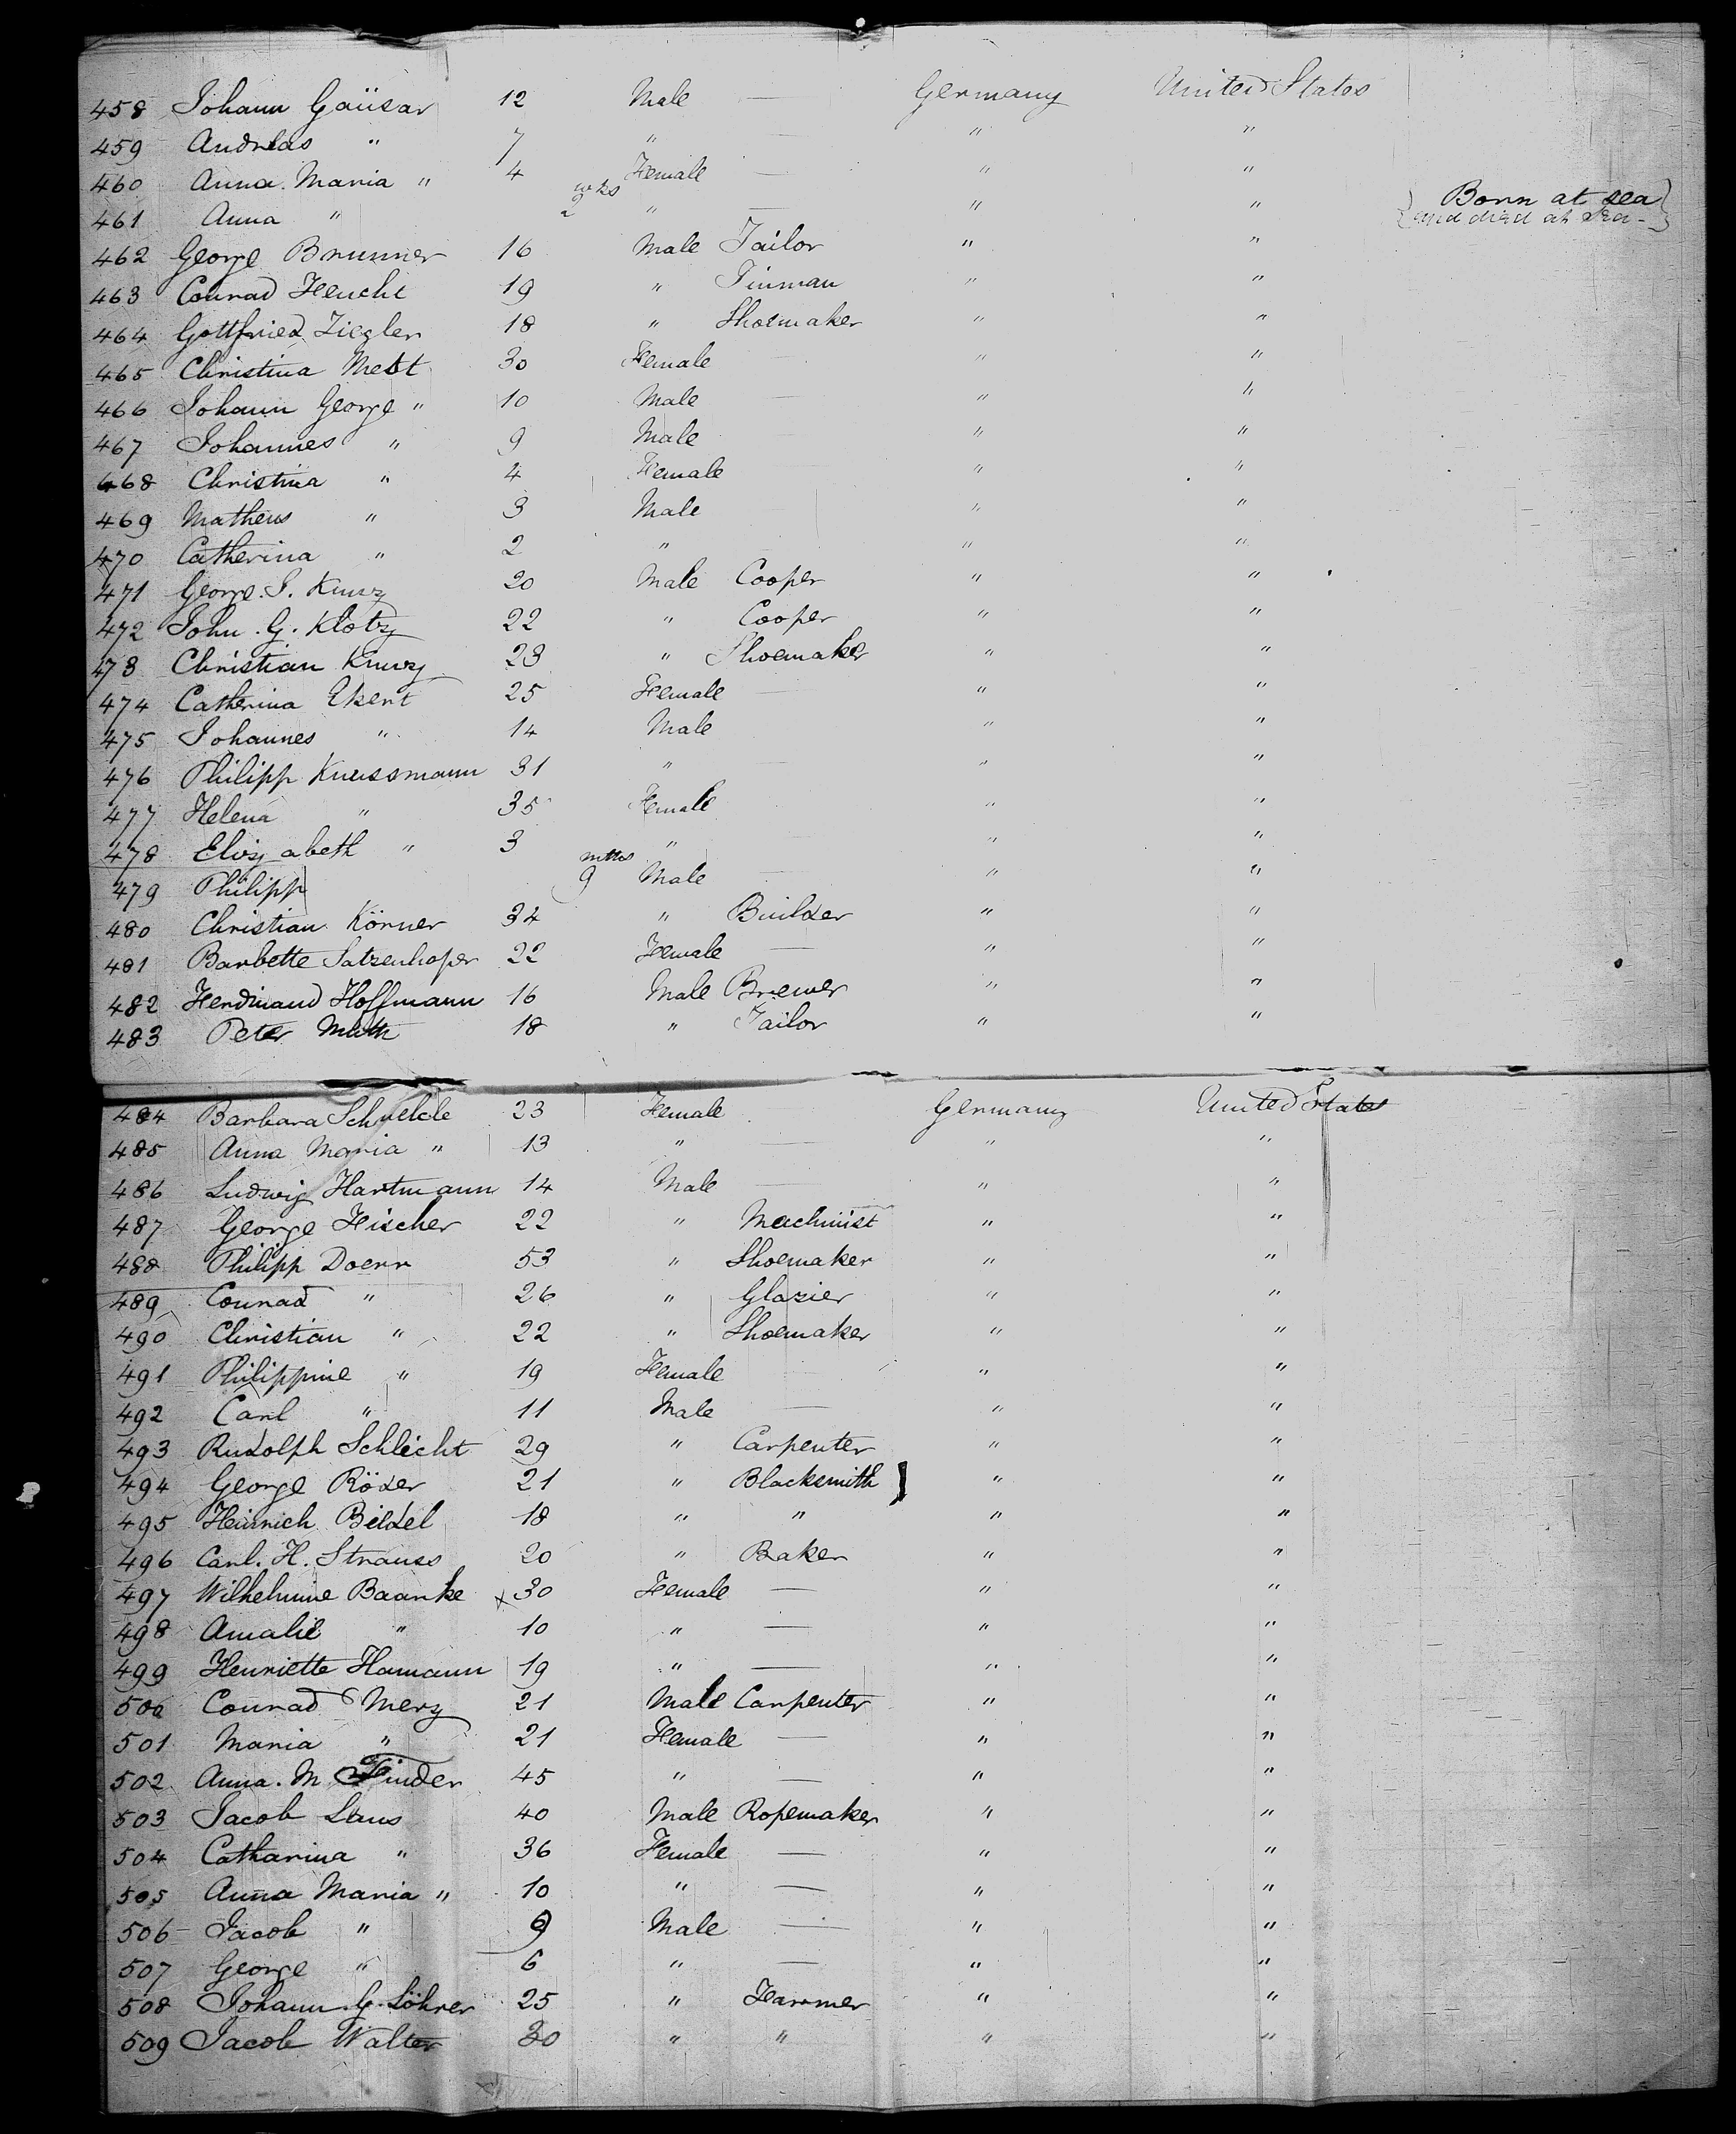 458 Johann Gaüsar 12 Male — Germany United States
459 Andreas " 7 " — " "
460 Anna. Maria " 4 Female — " "
461 Anna " 2 wks " — " " Born at sea
and died at Sea-
462 George Brunner 16 Male Tailor " "
463 Conrad Feucht 19 " Tinman " "
464 Gottfried Ziegler 18 " Shoemaker " "
465 Christina Mebt 30 Female — " "
466 Johann George " 10 Male — " "
467 Johannes " 9 Male " "
468 Christina " 4 Female — " "
469 Matheus " 3 Male " "
470 Catherina " 2 " — " "
471 George. J. Kurz 20 Male Cooper " "
472 John. G. Klotz 22 " Cooper " "
473 Christian Kurz 23 " Shoemaker " "
474 Catherina Ekert 25 Female — " "
475 Johannes " 14 Male " "
476 Philipp Kneissmann 31 " — " "
477 Helena " 35 Female " "
478 Elizabeth " 3 " — " "
479 Philipp 9 mths Male — " "
480 Christian Körner 34 " Builder " "
481 Barbette Satzenhofer 22 Female — " "
482 Ferdinand Hoffmann 16 Male Brewer " "
483 Peter Muth 18 " Tailor " "
484 Barbara 23 Female Germany United States
485 Anna Maria " 13 " — " "
486 Ludwig Hartmann 14 Male — " "
487 George Fischer 22 " Machinist " "
488 Philipp Doerr 53 " Shoemaker " "
489 Conrad " 26 " Glazier " "
490 Christian " 22 " Shoemaker " "
491 Philippine " 19 Female — " "
492 Carl " 11 Male — " "
493 Rudolph Schlicht 29 " Carpenter " "
494 George Röder 21 " Blacksmith " "
495 Heinrich Beidel 18 " " " "
496 Carl. H. Strauss 20 " Baker " "
497 Wilhelmine Baanke x 30 Female — " "
498 Amalie " 10 " — " "
499 Henriette Hamann 19 " — " "
500 Conrad Merz 21 Male Carpenter " "
501 Maria " 21 Female — " "
502 Anna. M Finder 45 " — " "
503 Jacob Laus 40 Male Ropemaker " "
504 Catharina " 36 Female — " "
505 Anna Maria " 10 " — " "
506 Jacob " 9 Male — " "
507 George " 6 " — " "
508 Johann. G. Löhrer 25 " Farmer " "
509 Jacob Walter 30 " " " "